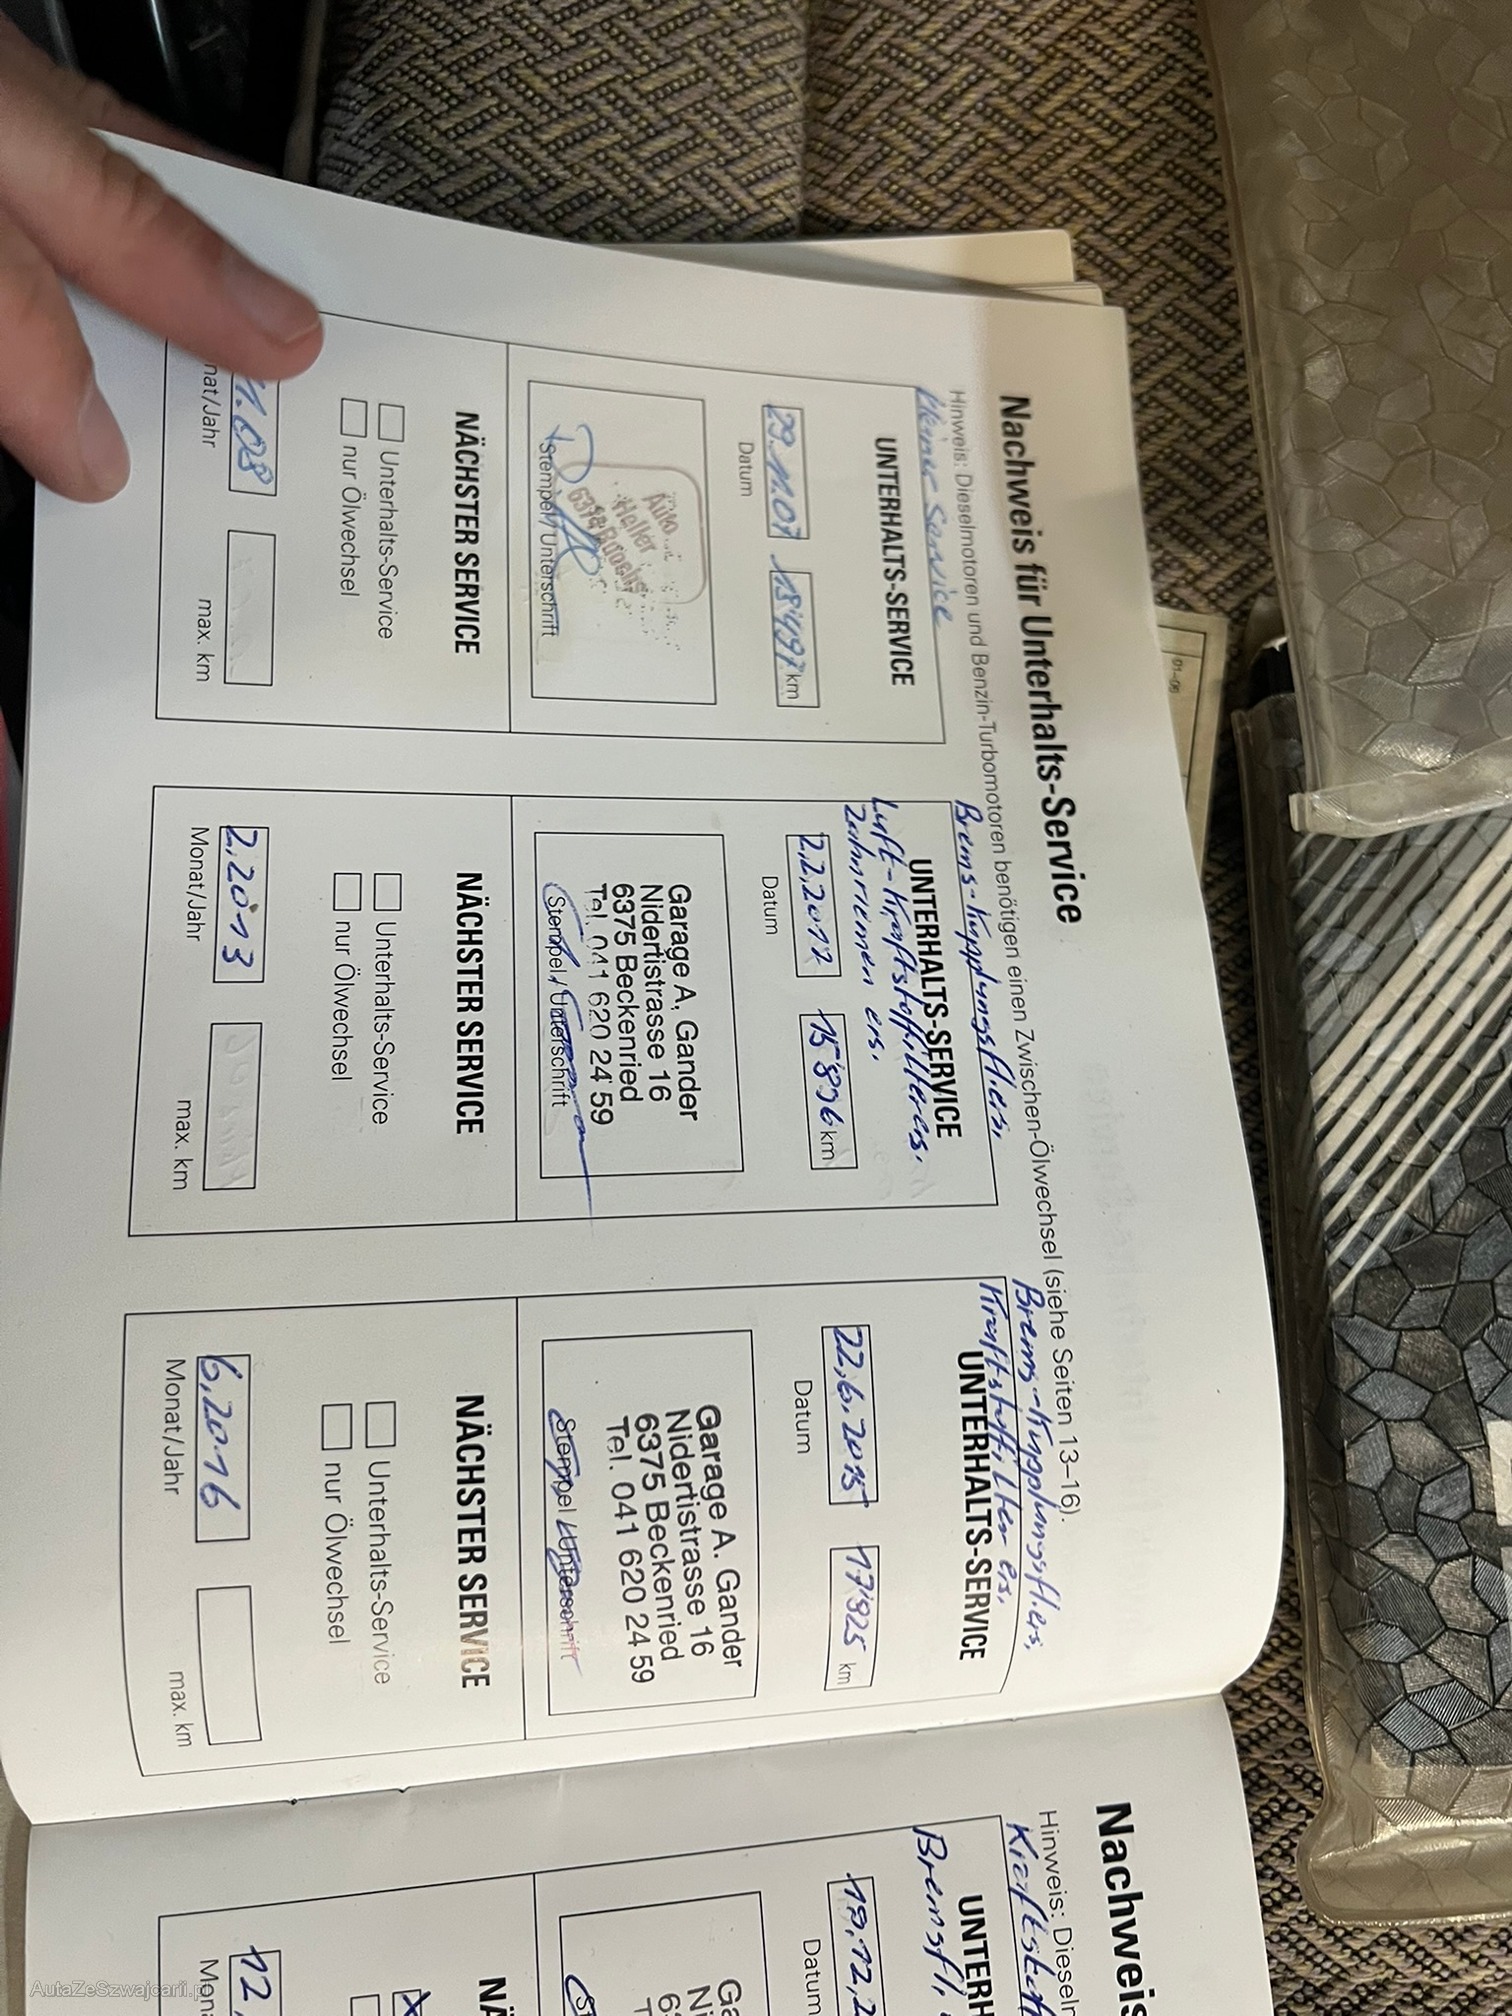 Nachweis für Unterhalts-Service
Hinweis: Dieselmotoren und Benzin-Turbomotoren benötigen einen Zwischen-Ölwechsel (siehe Seiten 13–16).
Kleiner Service
UNTERHALTS-SERVICE
29.11.07
km
Datum
Auto
Stempel / Unterschrift
NÄCHSTER SERVICE
Unterhalts-Service
nur Ölwechsel
1.08
nat/Jahr
max. km
Brems-Kupplungsfl.ers.
UNTERHALTS-SERVICE
Luft-Kraftstoffilter ers.
Zahnriemen ers.
2,2,2012
15'896 km
Datum
Garage A. Gander
Nidertistrasse 16
6375 Beckenried
Tel. 041 620 24 59
Stempel / Unterschrift
NÄCHSTER SERVICE
Unterhalts-Service
nur Ölwechsel
2,2013
Monat/Jahr
max. km
Brems-Kupplungsfl.ers,
Kraftstoffilter ers,
UNTERHALTS-SERVICE
22,6,2015
17'925 km
Datum
Garage A. Gander
Nidertistrasse 16
6375 Beckenried
Tel. 041 620 24 59
Stempel / Unterschrift
NÄCHSTER SERVICE
Unterhalts-Service
nur Ölwechsel
6,2016
Monat/Jahr
max. km
Nachweis
Hinweis: Dieselm
UNTERH
Bremsfl,
Datum
Ga
Ni
NÄ
12,
Mona
01-06
AutaZeSzwajcarii.pl